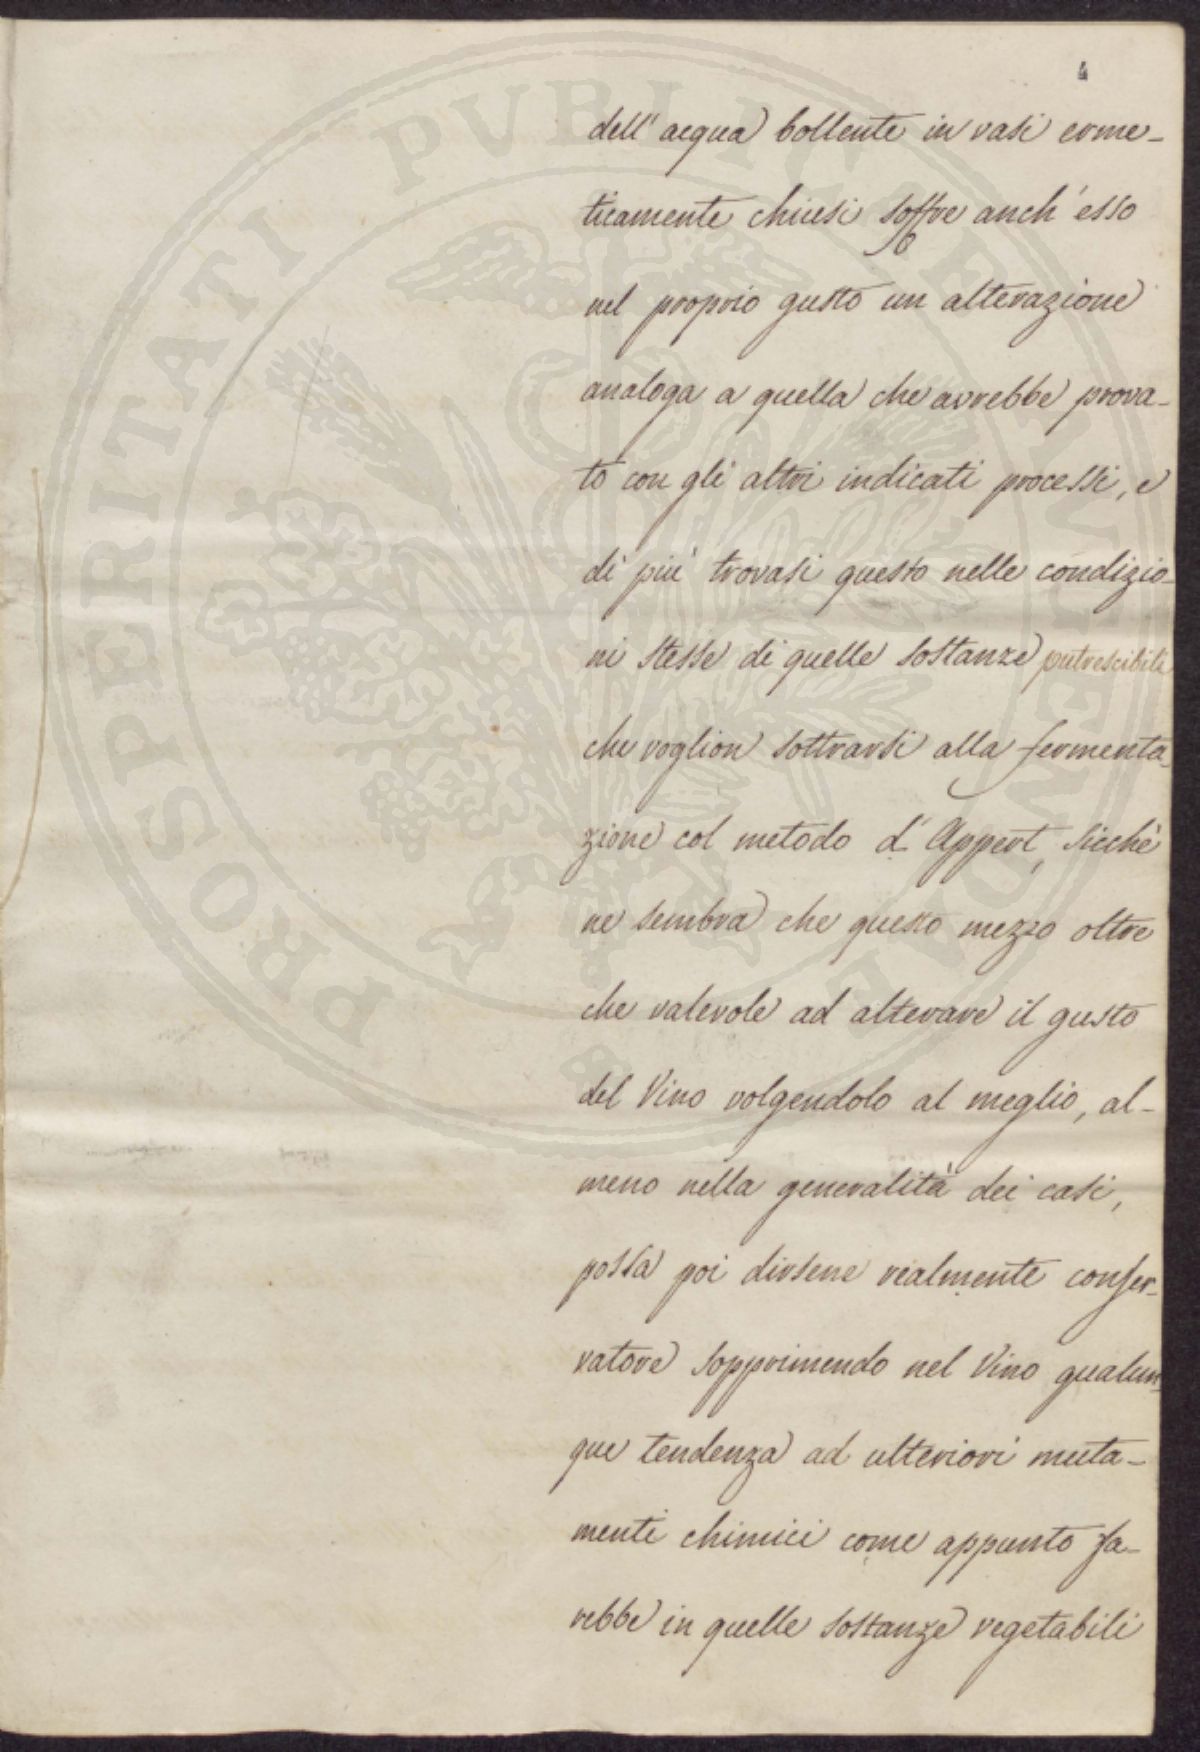 4
dell'acqua bollente in vasi erme-
ticamente chiusi soffre anch'esso
nel proprio gusto un alterazione
analoga a quella che avrebbe prova-
to con gli altri indicati processi, e
di più trovasi questo nelle condizio-
ni stesse di quelle sostanze putrescibili
che voglion sottrarsi alla fermenta-
zione col metodo d'Appert, sicchè
ne sembra che questo mezzo oltre
che valevole ad alterare il gusto
del Vino volgendolo al meglio, al-
meno nella generalità dei casi,
possa poi dirsene realmente conser-
vatore sopprimendo nel Vino qualun-
que tendenza ad ulteriori muta-
menti chimici come appunto fa-
rebbe in quelle sostanze vegetabili
PROSPERITATI PUBLICAE AUGENDAE